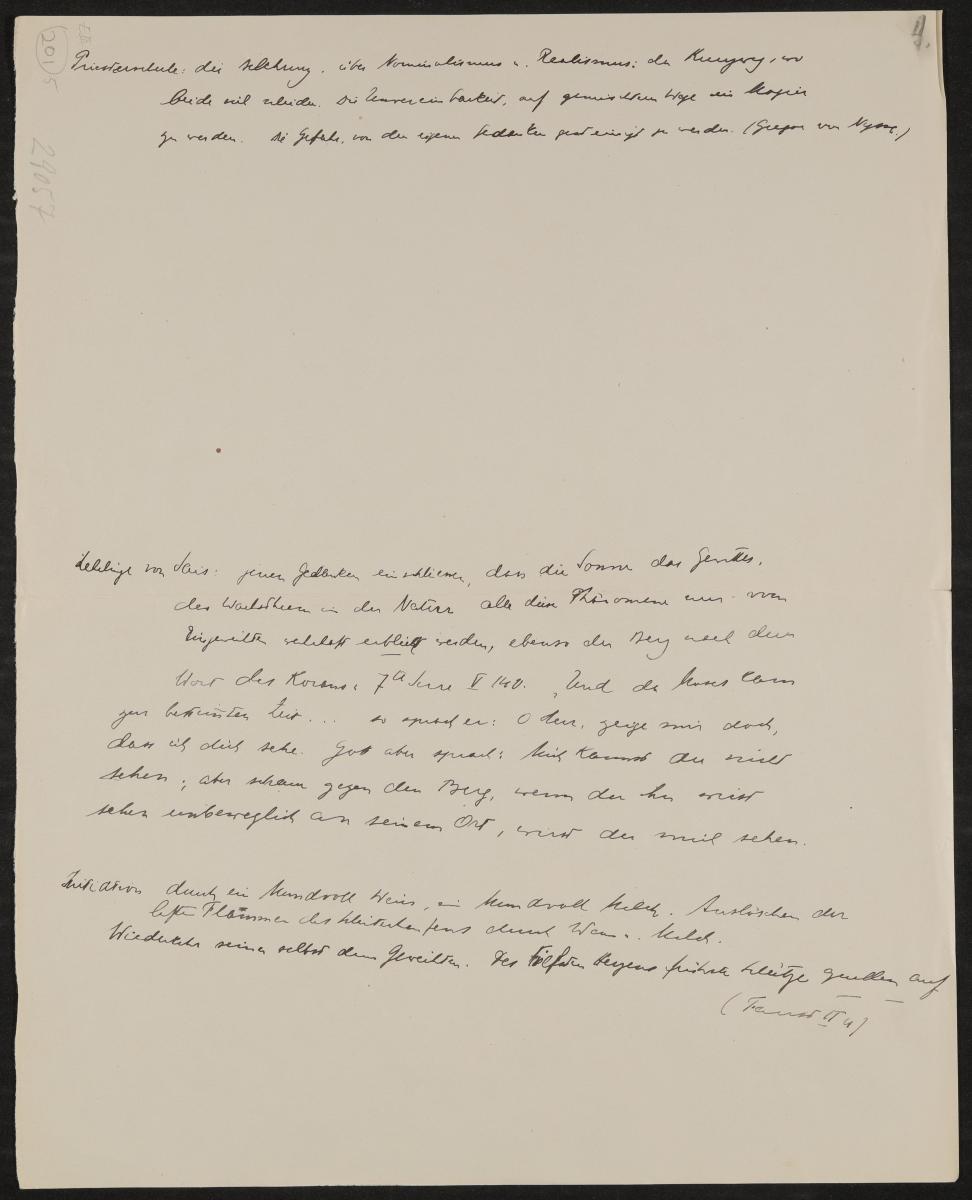 4.
E IV
201/5
29057
Priesterschule: die Belehrung über Nominalismus u. Realismus: der Kreuzweg, wo
beide sich scheiden. Die Unvereinbarkeit, auf gemischtem Wege ein Magier
zu werden. Die Gefahr, von den eigenen Gedanken gepeinigt zu werden. (Gregor von Nyssa.)
Lehrlinge von Sais: jenen Gedanken einschliessen, dass die Sonne das Gerüttes,
des Wachsthum in der Natur alle diese Phänomene nur von
Eingeweihten erblickt werden, ebenso der Berg nach dem
Wort des Korans: 7te Sure V 140. „Und da Moses kam
zur bestimten Zeit ... so sprach er: O Herr, zeige mir doch,
dass ich dich sehe. Gott aber sprach: Mich kannst du nicht
sehen; aber schaue gegen den Berg, wenn du ihn wirst
sehen unbeweglich an seinem Ort, wirst du mich sehen.
Initiation durch ein Mundvoll Wein, ein Mundvoll Milch. Auslöschen der
letzten Flammen des Scheiterhaufens durch Wein u. Milch.
Wiederkehr seiner selbst dem Geweihten. Des tiefsten Herzens frühste Schätze quellen auf
(Faust II 4)